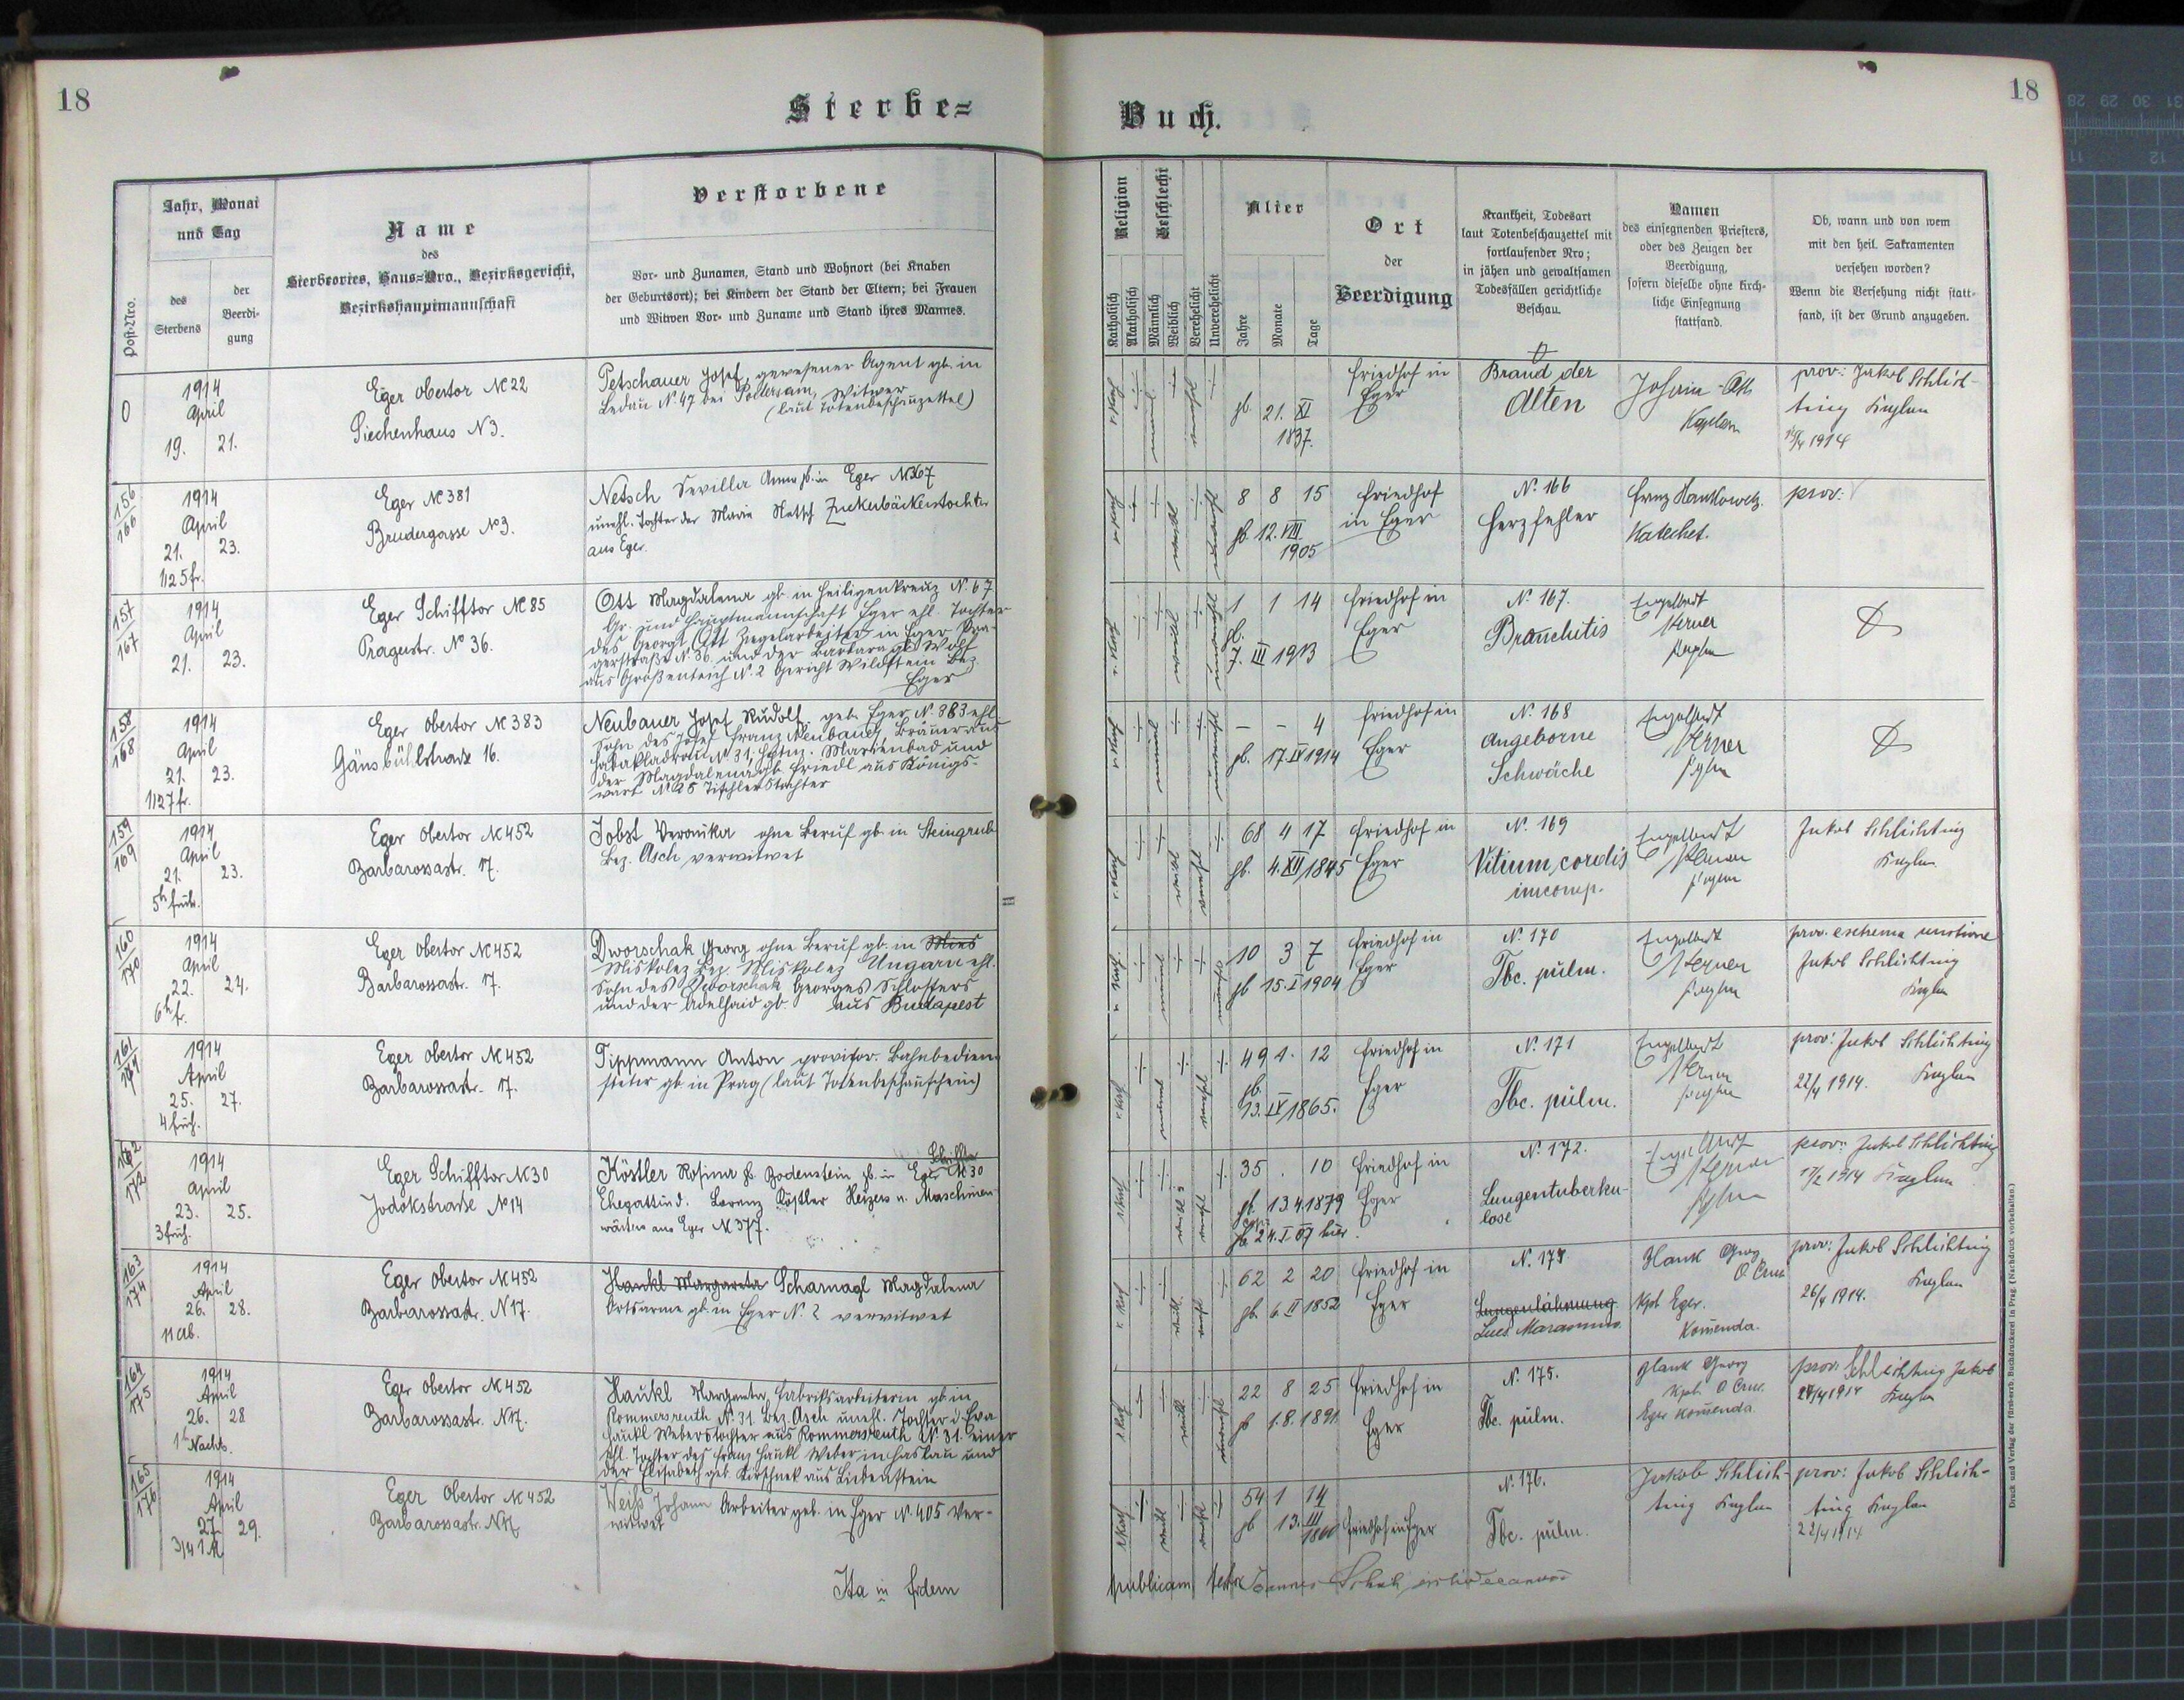 18
Sterbe=
Buch.
18
Post-Nro.
Jahr, Monat
und Tag
des
Sterbens
der
Beerdi-
gung
Name
des
Sterbeortes, Haus=Nro., Bezirksgericht,
Bezirkshauptmannschaft
Verstorbene
Vor- und Zunamen, Stand und Wohnort (bei Knaben
der Geburtsort); bei Kindern der Stand der Eltern; bei Frauen
und Witwen Vor- und Zuname und Stand ihres Mannes.
Religion
Katholisch
Akatholisch
Geschlecht
Männlich
Weiblich
Verehelicht
Unverehelicht
Alter
Jahre
Monate
Tage
Ort
der
Beerdigung
Krankheit, Todesart
laut Totenbeschauzettel mit
fortlaufender Nro;
in jähen und gewaltsamen
Todesfällen gerichtliche
Beschau.
Namen
des einsegnenden Priesters,
oder des Zeugen der
Beerdigung,
sofern dieselbe ohne kirch-
liche Einsegnung
stattfand.
Ob, wann und von wem
mit den heil. Sakramenten
versehen worden?
Wenn die Versehung nicht statt-
fand, ist der Grund anzugeben.
0
1914
April
19. 21.
Eger Obertor No 22
Siechenhaus N 3.
Petschauer Josef, gewesener Agent gb. in
Ledau N. 47 bei Podersam, Witwer
(laut Totenbeschauzettel)
gb. 21. XI
1837.
Friedhof in
Eger
Brand der
Alten
Kaplan
prov: Jakob Schlich-
ting Kaplan
1914
156
166
1914
April
21. 23.
1/2 5 fr.
Eger No 381
Brudergasse No 3.
Netsch Sevilla Anna gb. in Eger No 367
unehl. Tochter der Maria Netsch Zuckerbäckerstochter
aus Eger.
8 8 15
gb. 12. VIII.
1905
Friedhof
in Eger
No. 166
Herzfehler
Franz Hankowetz
Katechet.
prov:
157
167
1914
April
21. 23.
Eger Schifftor No 85
Pragerstr. No 36.
Ott Magdalena gb. in Heiligenkreuz N. 67
Gr. und Hauptmannschaft Eger ehl. Tochter
des Georg Ott Ziegelarbeiter in Eger Pra-
gerstraße N. 36 und der Barbara gb. Wolf
aus Großenteich N. 2 Gericht Wildstein Bez.
Eger
1 1 14
gb.
7. III 1913
Friedhof in
Eger
No. 167.
Bronchitis
Engelbert
Werner
Kaplan
158
168
1914
April
21. 23.
1/2 7 fr.
Eger Obertor No 383
Gänsbühlstrasse 16.
Neubauer Josef Rudolf, geb. Eger N. 383 ehl.
Sohn des Josef Franz Neubauer, Brauer aus
N. 31, Hptm. Marienbad und
der Magdalena gb. Friedl aus Königs-
wart N 25 Tischlerstochter
— — 4
gb. 17. IV 1914
Friedhof in
Eger
No. 168
Angeborne
Schwäche
Engelbert
Werner
Kaplan
159
169
1914
April
21. 23.
5h früh.
Eger Obertor No 452
Barbarossastr. 17.
Jobst Veronika ohne Beruf gb. in Steingrub
Bez. Asch verwitwet
68 4 17
gb. 4. XII 1845
Friedhof in
Eger
No. 169
Vitium cordis
incomp.
Engelbert
Werner
Kaplan
Jakob Schlichting
Kaplan
160
170
1914
April
22. 24.
6h fr.
Eger Obertor No 452
Barbarossastr. 17.
Dworschak Georg ohne Beruf gb. in Mies
Miskolez Bez. Miskolez Ungarn ehl.
Sohn des Dworschak Georges Schlossers
und der Adelhaid gb. aus Budapest
10 3 7
gb 15. I 1904
Friedhof in
Eger
No. 170
Tbc. pulm.
Engelbert
Werner
Kaplan
prov. extrema unctione
Jakob Schlichting
Kaplan
161
171
1914
April
25. 27.
4 früh.
Eger Obertor No 452
Barbarossastr. 17.
Tippmann Anton provisor. Bahnbedien-
steter gb. in Prag (laut Totenbeschauschein)
49 1. 12
gb.
13. IV 1865.
Friedhof in
Eger
No. 171
Tbc. pulm.
Engelbert
Werner
Kaplan
prov: Jakob Schlichting
22/4 1914. Kaplan
162
172
1914
April
23. 25.
3 früh.
Eger Schifftor No 30
Jodokstrasse No 14
Köstler Rosina gb. Bodenstein gb. in Eger No 30
Ehegattin d. Lorenz Köstler Heizers u. Maschinen-
wärters aus Eger No 377.
35 . 10
gb. 13.4.1879
24. I 07 hier.
Friedhof in
Eger
No. 172.
Lungentuberku-
lose
Engelbert
Werner
Kaplan
prov: Jakob Schlichting
17/2 1914 Kaplan
163
174
1914
April
26. 28.
11 ab.
Eger Obertor No 452
Barbarossastr. N 17.
Hankl Margareta Scharnagl Magdalena
Ortsarme gb. in Eger N. 2 verwitwet
62 2 20
gb. 6 II 1852
Friedhof in
Eger
No. 174
Lungenlähmung
Lues. Marasmus.
Hank Georg
O Cruc.
Kpl. Eger.
Komenda.
prov: Jakob Schlichting
26/4 1914. Kaplan
164
175
1914
April
26. 28
1h Nachts.
Eger Obertor No 452
Barbarossastr. N 17.
Hankl Margareta, Fabriksarbeiterin gb. in
Rommersreuth N. 31 Bez. Asch unehl. Tochter d. Eva
Hankl Weberstochter aus Rommersreuth N. 31. einer
ehl. Tochter des Franz Hankl Weber in Haslau und
der Elisabeth geb. Kirschnek aus Liebenstein
22 8 25
gb 1.8.1891
Friedhof in
Eger
No. 175.
Tbc. pulm.
Hank Georg
Kpl. O Cruc.
Eger Komenda
prov: Schlichting Jakob
24/4 1914 Kaplan
165
176
1914
April
27. 29.
3/4 1
Eger Obertor No 452
Barbarossastr. N 17
Weiß Johann Arbeiter geb. in Eger N. 405 Ver-
witwet
54 1 14
gb 13. III
1860
Friedhof in Eger
No. 176.
Tbc. pulm.
Jakob Schlich-
ting Kaplan
prov: Jakob Schlich-
ting Kaplan
22/4 1914
Ita in fidem
publicam
Druck und Verlag der fürsterzb. Buchdruckerei in Prag. (Nachdruck vorbehalten.)